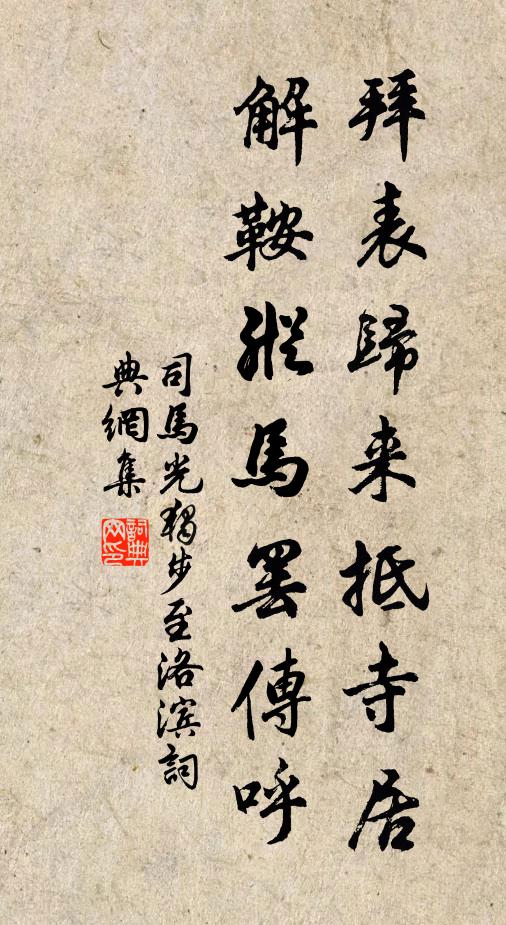 拜表歸来抵寺居
解鞍縱馬罢傳呼
司馬光獨步至洛滨詞
典網集
詞典網印